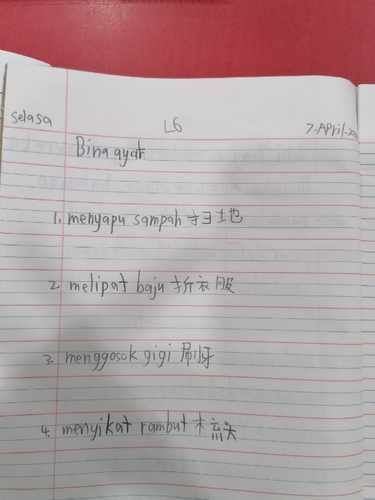 selasa L6 7.April.
Bina ayat
1. menyapu sampah 扫土地
2. melipat baju 折衣服
3. menggosok gigi 刷牙
4. menyikat rambut